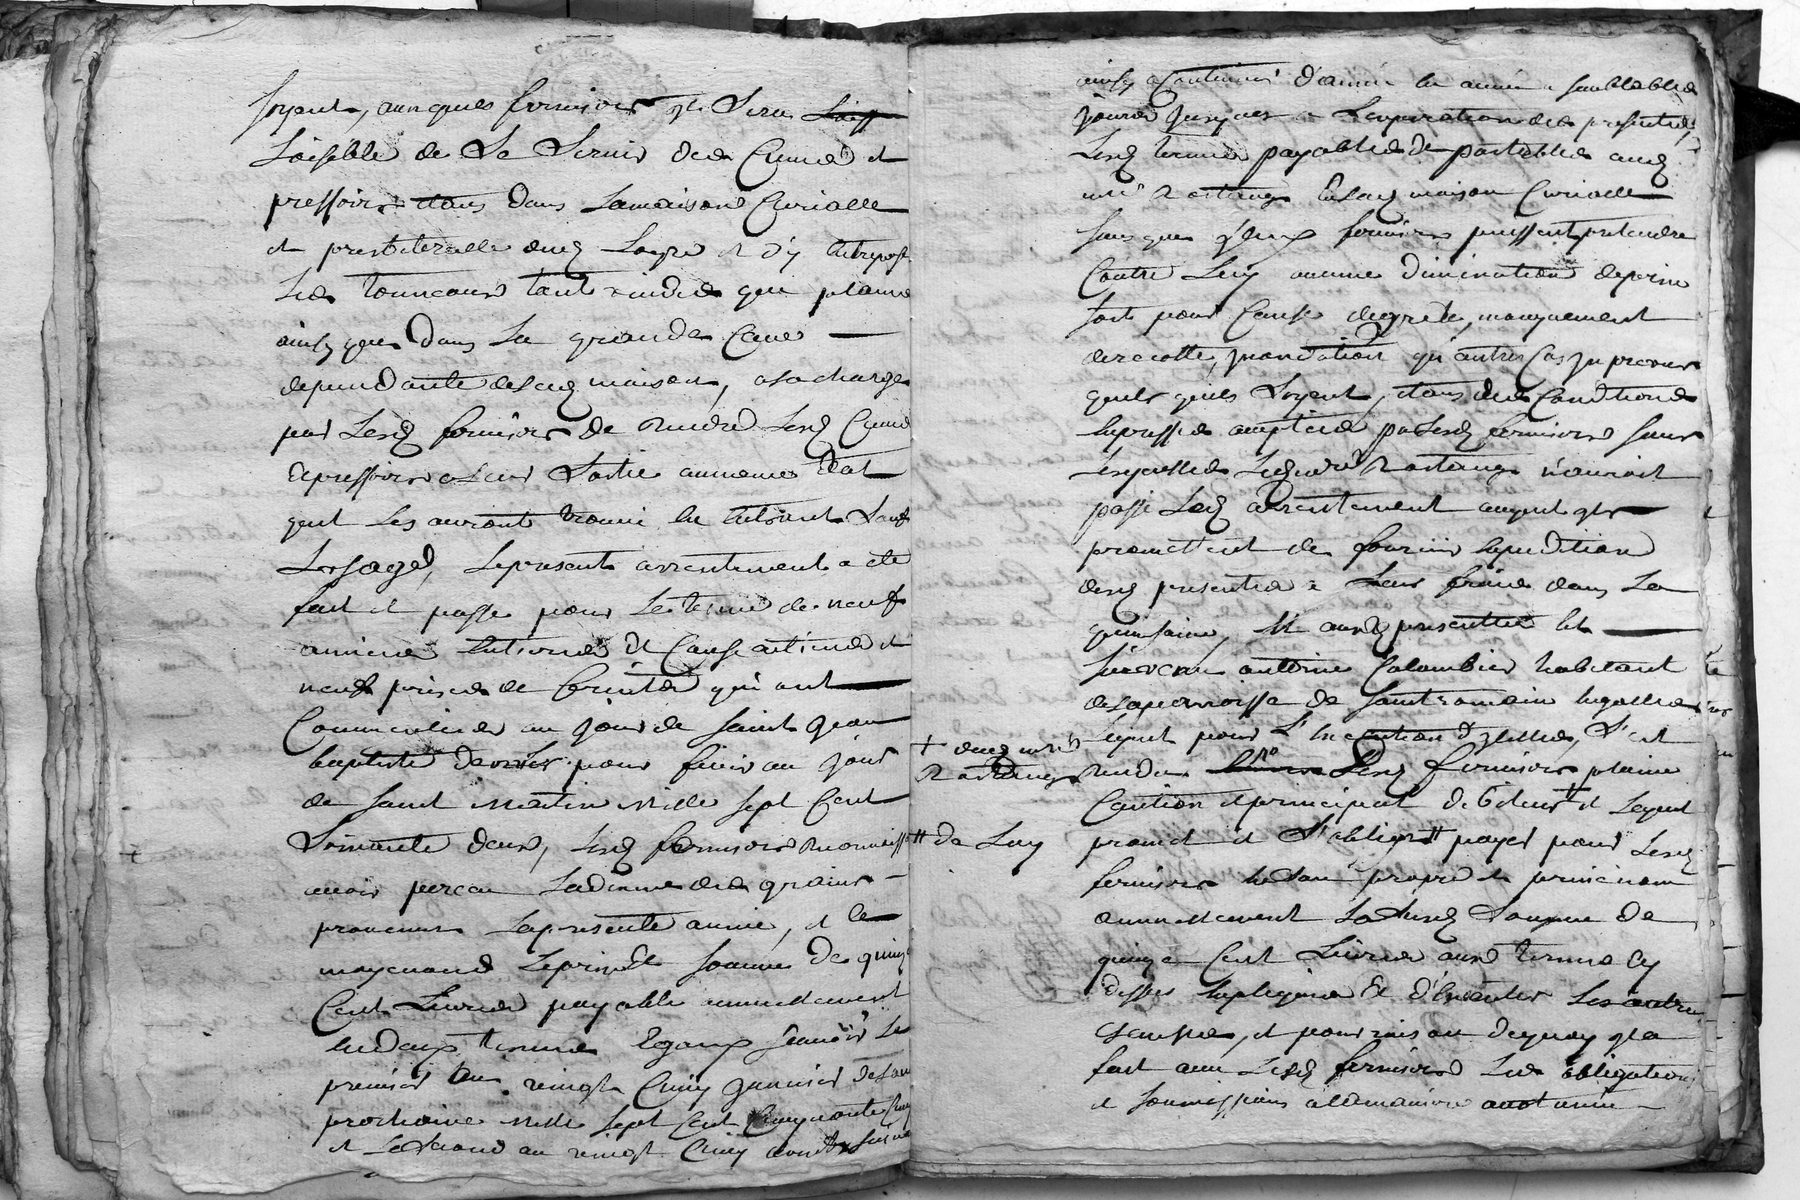 soyent, auxquels fermiers il sera
Loisible de Se Servir des Cuves et
pressoirs etans dans Lamaison Curialle
et presbiteralle dud Loyre et d'y Entreposer
Les tonneaux tant vuides que pleins
ainsy que dans La grande Cave
dependante delad maison, a la charge
par Lesd fermiers de Rendre Lesd Cuves
Et pressoirs a Leur Sortie au meme Etat
quil Les auront trouvé En Entrant Sauf
L'usage, Lepresent arrentement a eté
fait et passé pour Leterme de neuf
années Entieres et Consecutives et
neuf prises de fruits qui ont
Commencées au jour de Saint Jean
baptiste dernier pour finir au jour
de Saint Martin Mille Sept Cent
Soixante deux, Lesd fermiers Reconnoissent
avoir perceu Ladixme des grains
provenus Lapresente année, et le
moyennant Leprix et Somme de quinze
Cent Livres payable annuellement
En deux termes Egaux Sçavoir Le
premier au vingt Cinq janvier de l'an
prochain Mille Sept Cent Cinquante Cinq
et Le Second au vingt Cinq
ainsy a Continuer d'année En année a Semblables
jours jusques a L'expiration des presentes
Lesd termes payables et portables aud
Rostaing En lad maison Curialle
Sans que fermiers puissent pretendre
Contre Luy aucune diminution de prix
soit pour Cause de grele, manquement
de recolte, jnondation ny autres Cas jnprevus
quels quils Soyent, etans des Conditions
Expresses acceptées par Lesd fermiers Sans
Lesquelles Led Rostaing n'auroit
passé Led arrentement auquel ils
promettent de fournir Expedition
des presentes a Leurs frais dans La
quinzaine, Et aux presentes Est
Survenu antoine Colombier habitant
delaparroisse de Saint romain Engalles
Lequel pour L'Execution d'jcelles, S'est
+ dud
Rostaing
Rendu Lesd fermiers pleine
Caution et principal debiteur et Lequel
# de Luy
promet et S'oblige # payer pour Lesd
fermiers En Son propre et privé nom
annuellement Lasusd Somme de
quinze Cent Livres aux termes Cy
dessus Expliqués Et d'Executer Les autres
Clauses, et pour raison dequoy il a
fait avec Lesd fermiers Les obligations
et Soumissions a lamaniere